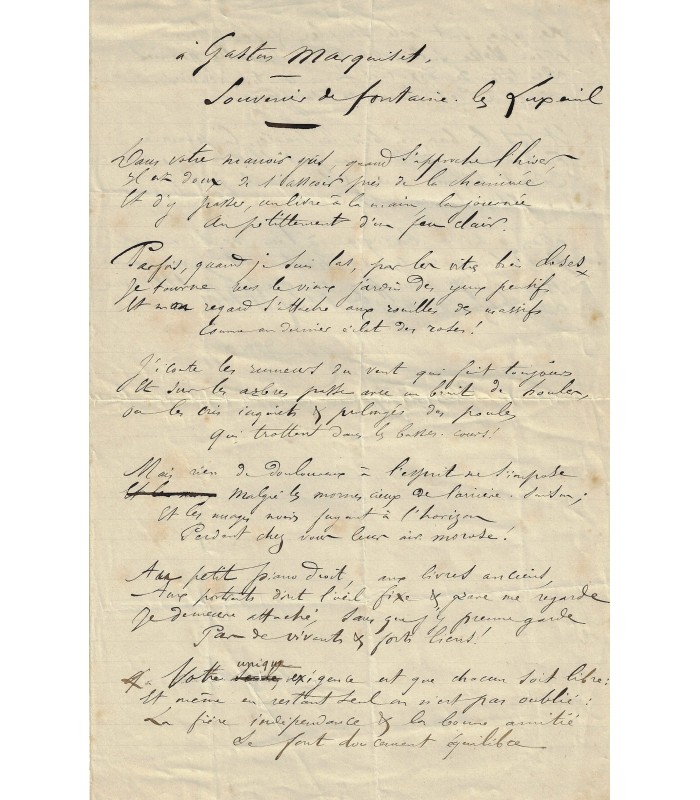 à Gaston Marquiset,
Souvenir de fontaine-les Luxeuil
Dans votre manoir gris, quand s'approche l'hiver,
Il est doux de s'asseoir près de la cheminée
Et d'y passer, un livre à la main, la journée
Au pétillement d'un feu clair.
Parfois, quand je suis las, par les vitres bien closes
Je tourne vers le vieux jardin des yeux pensifs
Et mon regard s'attache aux rouilles des massifs
Comme au dernier éclat des roses!
J'écoute les rumeurs du vent qui fuit toujours
Et sur les arbres passe avec un bruit de houles,
ou les cris inquiets & prolongés des poules
Qui trottent dans les basses-cours!
Mais rien de douloureux à l'esprit ne s'impose
Malgré les mornes cieux de l'arrière-saison;
Et les nuages noirs fuyant à l'horizon
Perdent chez vous leur air morose!
Au petit piano droit, aux livres anciens,
Aux portraits dont l'œil fixe & grave me regarde
Je demeure attaché, sans que j'y prenne garde
Par de vivants & forts liens!
Votre unique exigence est que chacun soit libre:
Et même en restant seul on n'est pas oublié:
La fière indépendance & la bonne amitié
Se font doucement équilibre